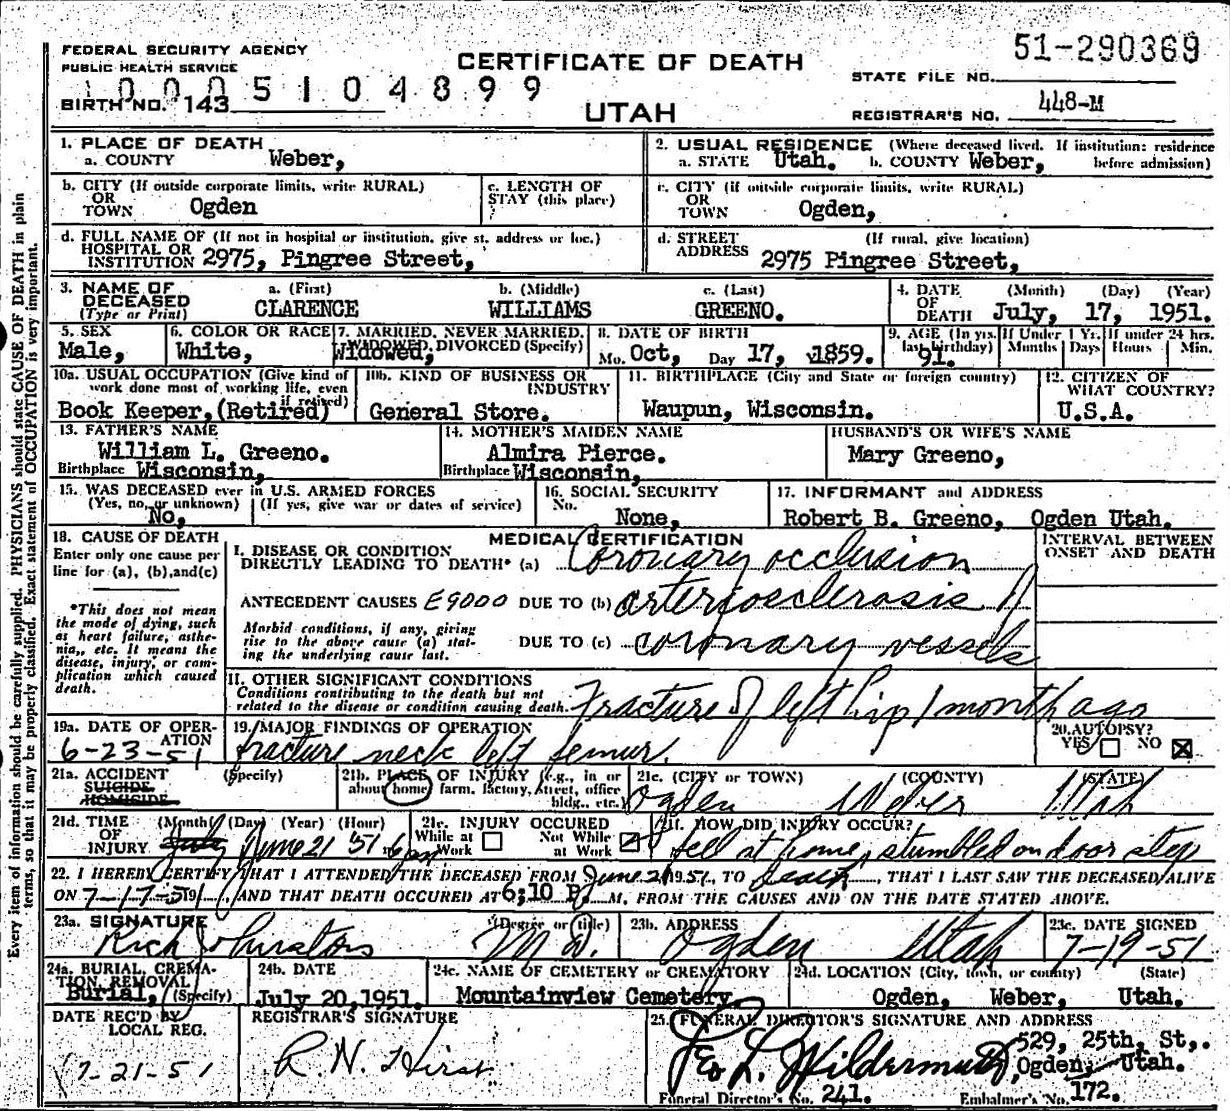 FEDERAL SECURITY AGENCY
PUBLIC HEALTH SERVICE
CERTIFICATE OF DEATH
51-290369
STATE FILE NO.
1 0 0 0 5 1 0 4 8 9 9
BIRTH NO. 143
UTAH
REGISTRAR'S NO. 448-M
1. PLACE OF DEATH
a. COUNTY Weber,
2. USUAL RESIDENCE (Where deceased lived. If institution: residence before admission)
a. STATE Utah. b. COUNTY Weber,
b. CITY (If outside corporate limits, write RURAL)
OR
TOWN Ogden
c. LENGTH OF
STAY (this place)
c. CITY (if outside corporate limits, write RURAL)
OR
TOWN Ogden,
d. FULL NAME OF (If not in hospital or institution, give st. address or loc.)
HOSPITAL OR
INSTITUTION 2975, Pingree Street,
d. STREET
ADDRESS (If rural, give location)
2975 Pingree Street,
3. NAME OF
DECEASED
(Type or Print)
a. (First) b. (Middle) c. (Last)
CLARENCE WILLIAMS GREENO.
4. DATE
OF
DEATH
(Month) (Day) (Year)
July, 17, 1951.
5. SEX
Male,
6. COLOR OR RACE
White,
7. MARRIED, NEVER MARRIED,
WIDOWED, DIVORCED (Specify)
Widowed,
8. DATE OF BIRTH
Mo. Oct, Day 17, 1859.
9. AGE (In yrs. last birthday)
91.
If Under 1 Yr. If under 24 hrs.
Months Days Hours Min.
10a. USUAL OCCUPATION (Give kind of
work done most of working life, even
if retired)
Book Keeper, (Retired)
10b. KIND OF BUSINESS OR
INDUSTRY
General Store.
11. BIRTHPLACE (City and State or foreign country)
Waupun, Wisconsin.
12. CITIZEN OF
WHAT COUNTRY?
U.S.A.
13. FATHER'S NAME
William L. Greeno.
Birthplace Wisconsin,
14. MOTHER'S MAIDEN NAME
Almira Pierce.
Birthplace Wisconsin,
HUSBAND'S OR WIFE'S NAME
Mary Greeno,
15. WAS DECEASED ever in U.S. ARMED FORCES
(Yes, no, or unknown) (If yes, give war or dates of service)
No,
16. SOCIAL SECURITY
No.
None,
17. INFORMANT and ADDRESS
Robert B. Greeno, Ogden Utah.
18. CAUSE OF DEATH
Enter only one cause per
line for (a), (b), and (c)
*This does not mean
the mode of dying, such
as heart failure, asthe-
nia, etc. It means the
disease, injury, or com-
plication which caused
death.
MEDICAL CERTIFICATION
INTERVAL BETWEEN
ONSET AND DEATH
I. DISEASE OR CONDITION
DIRECTLY LEADING TO DEATH* (a) Coronary occlusion
ANTECEDENT CAUSES E9000 DUE TO (b) arteriosclerosis of
Morbid conditions, if any, giving
rise to the above cause (a) stat-
ing the underlying cause last.
DUE TO (c) coronary vessels
II. OTHER SIGNIFICANT CONDITIONS
Conditions contributing to the death but not
related to the disease or condition causing death.
Fracture of left hip 1 month ago
19a. DATE OF OPER-
ATION
6-23-51
19. MAJOR FINDINGS OF OPERATION
fracture neck left femur.
20. AUTOPSY?
YES NO
21a. ACCIDENT
SUICIDE
HOMICIDE
(Specify)
21b. PLACE OF INJURY (e.g., in or
about home, farm, factory, street, office
bldg., etc.)
21c. (CITY or TOWN) (COUNTY) (STATE)
Ogden Weber Utah
21d. TIME
OF
INJURY
(Month) (Day) (Year) (Hour)
July June 21 51 6 pm
21e. INJURY OCCURED
While at
Work
Not While
at Work
21f. HOW DID INJURY OCCUR?
fell at home, stumbled on door step
22. I HEREBY CERTIFY THAT I ATTENDED THE DECEASED FROM June 21 1951, TO death, THAT I LAST SAW THE DECEASED ALIVE
ON 7-17-51 19, AND THAT DEATH OCCURED AT 6:10 P. M, FROM THE CAUSES AND ON THE DATE STATED ABOVE.
23a. SIGNATURE (Degree or title)
Rich Johnston M.D.
23b. ADDRESS
Ogden Utah
23c. DATE SIGNED
7-19-51
24a. BURIAL, CREMA-
TION, REMOVAL
Burial, (Specify)
24b. DATE
July 20, 1951.
24c. NAME OF CEMETERY or CREMATORY
Mountainview Cemetery,
24d. LOCATION (City, town, or county) (State)
Ogden, Weber, Utah.
DATE REC'D BY
LOCAL REG.
7-21-51
REGISTRAR'S SIGNATURE
R. N. Hirst
25. FUNERAL DIRECTOR'S SIGNATURE AND ADDRESS
Geo L. Wildermuth, 529, 25th, St,.
Ogden, Utah.
Funeral Director's No. 241. Embalmer's No. 172.
Every item of information should be carefully supplied. PHYSICIANS should state CAUSE OF DEATH in plain
terms, so that it may be properly classified. Exact statement of OCCUPATION is very important.